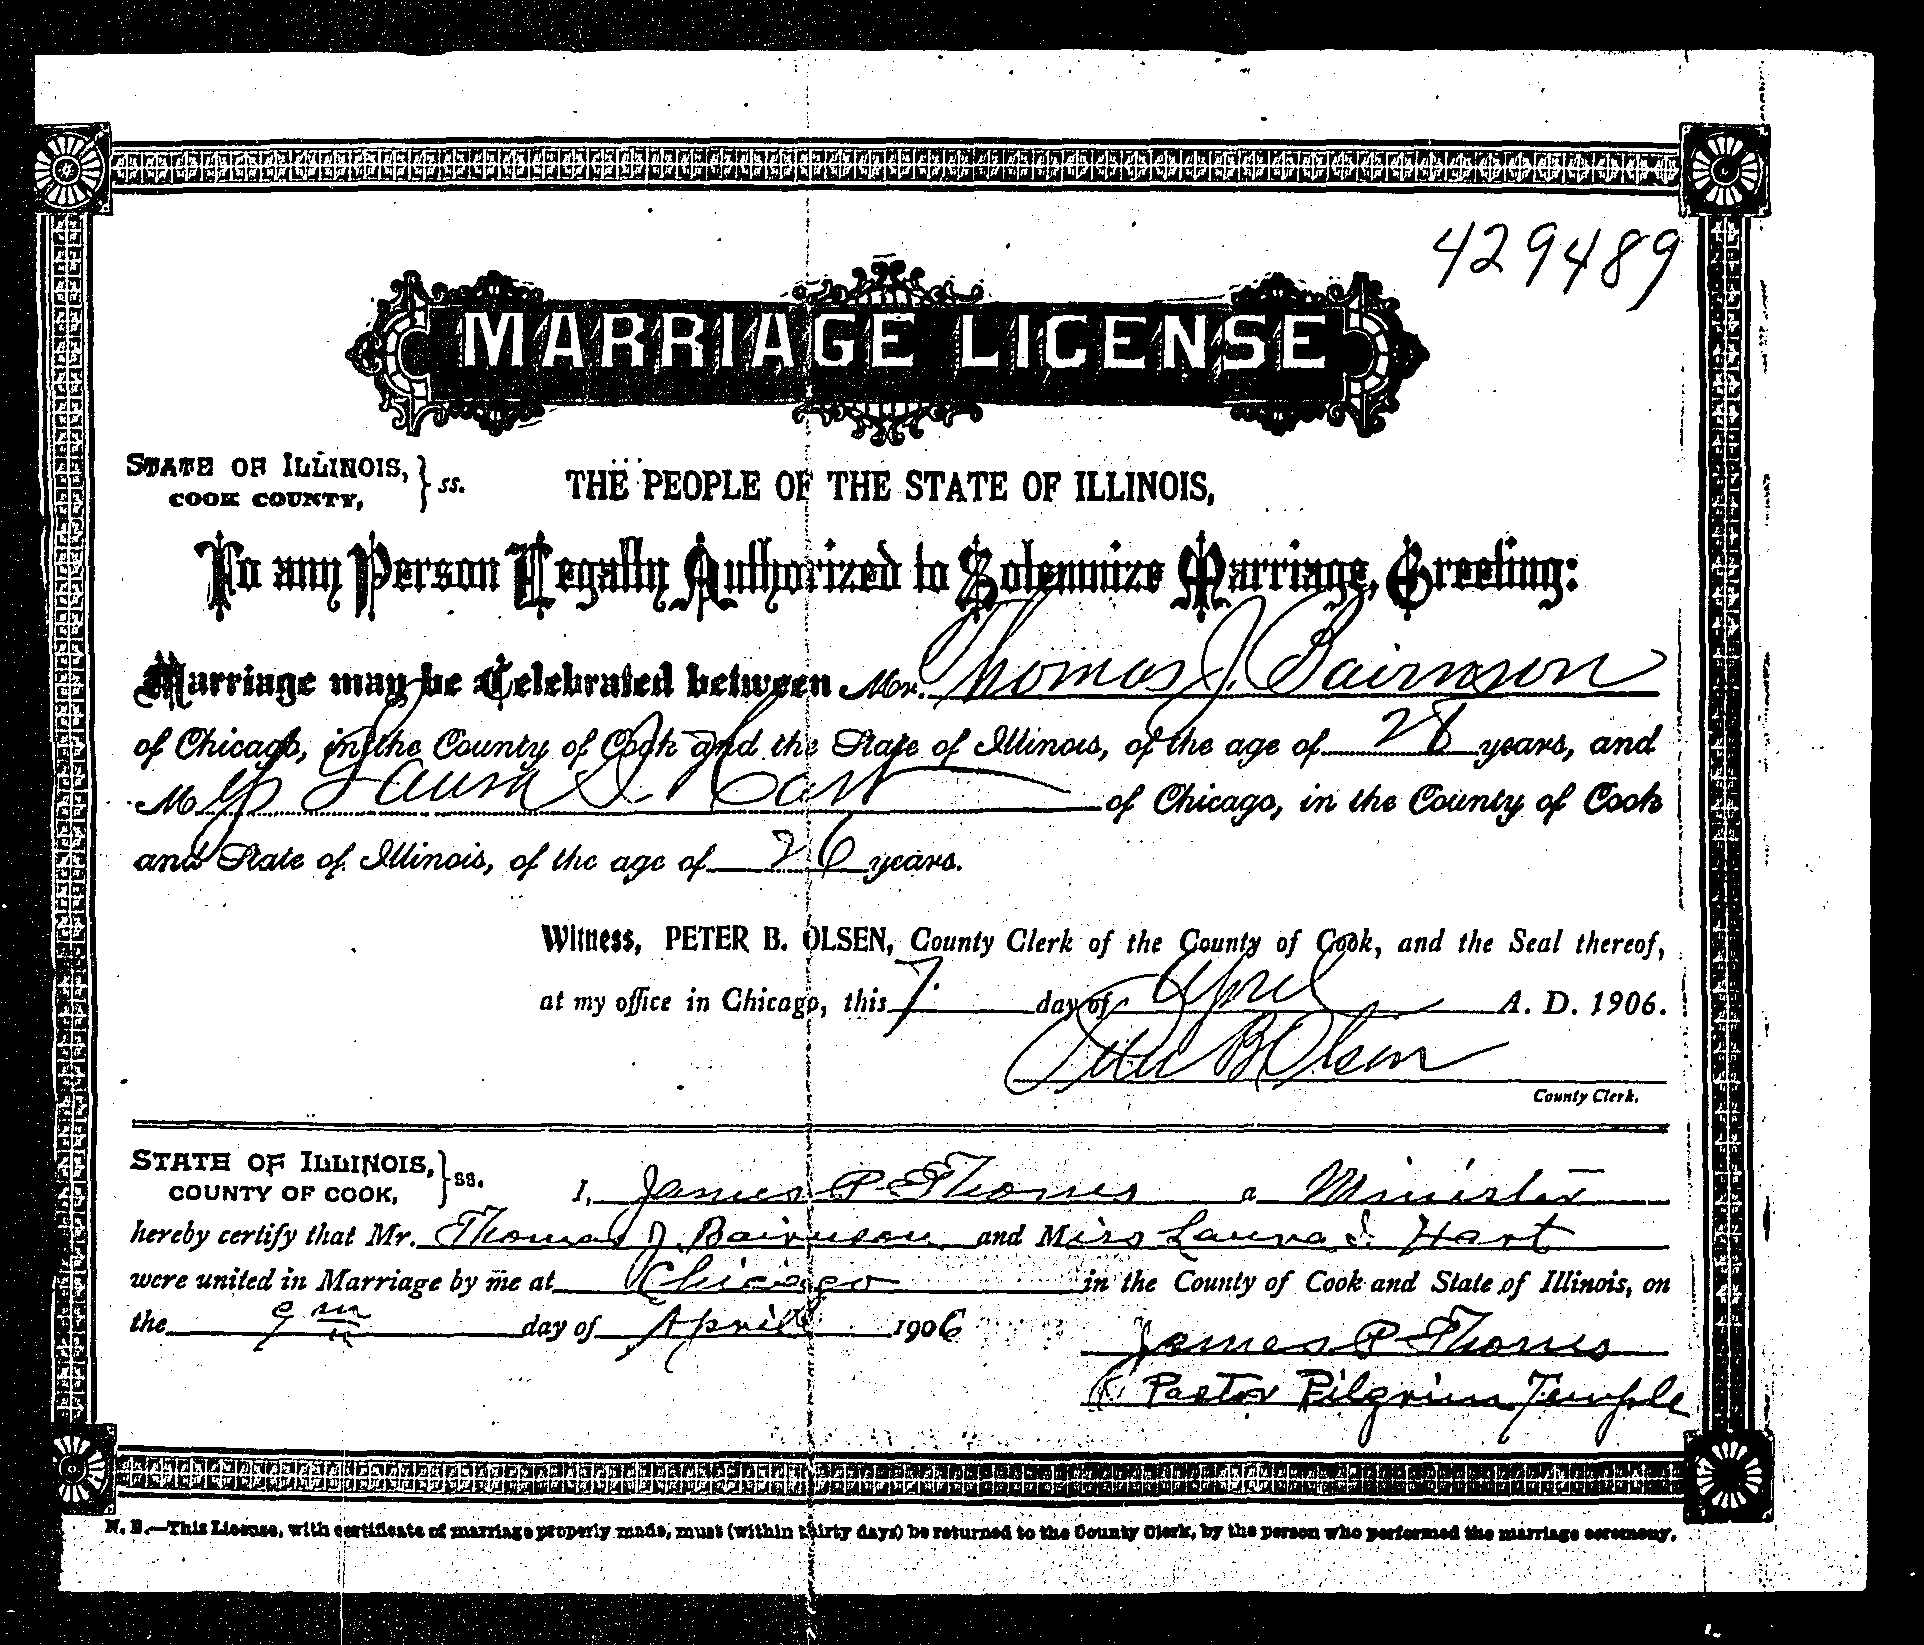 429489
MARRIAGE LICENSE
STATE OF ILLINOIS, } ss. THE PEOPLE OF THE STATE OF ILLINOIS,
COOK COUNTY,
To any Person Legally Authorized to Solemnize Marriage, Greeting:
Marriage may be Celebrated between Mr. Thomas J. Bairnson
of Chicago, in the County of Cook and the State of Illinois, of the age of 28 years, and
M Laura I Hart of Chicago, in the County of Cook
and State of Illinois, of the age of 26 years.
Witness, PETER B. OLSEN, County Clerk of the County of Cook, and the Seal thereof,
at my office in Chicago, this 7. day of April A. D. 1906.
Peter B Olsen
County Clerk.
STATE OF ILLINOIS, } ss. I, James P Thoms a Minister
COUNTY OF COOK,
hereby certify that Mr. Thomas J. Bairnson and Miss Laura I. Hart
were united in Marriage by me at Chicago in the County of Cook and State of Illinois, on
the 9 day of April 1906
James P Thoms
Pastor Pilgrim Temple
N. B.—This License, with certificate of marriage properly made, must (within thirty days) be returned to the County Clerk, by the person who performed the marriage ceremony.